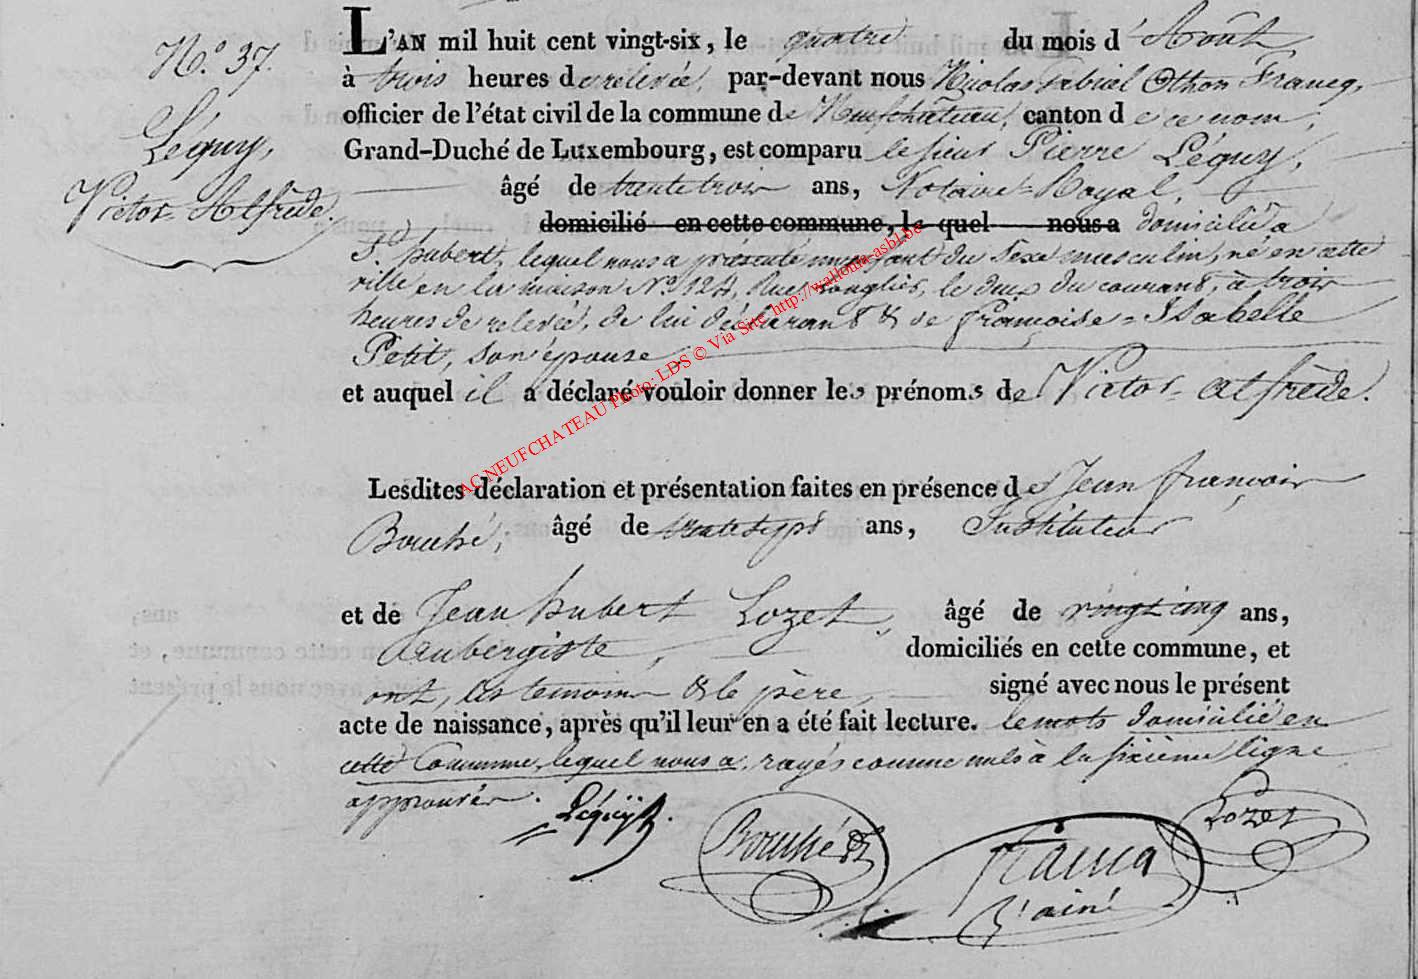 N.º 37.
Léguy,
Victor-Alfrède.
L'AN mil huit cent vingt-six, le quatre du mois d'Août,
à trois heures de relevée, par-devant nous Nicolas Gabriel Othon Francq,
officier de l'état civil de la commune de Neufchâteau, canton de ce nom,
Grand-Duché de Luxembourg, est comparu le sieur Pierre Léguy,
âgé de trente trois ans, Notaire-Royal,
domicilié en cette commune, le quel nous a domicilié à
St hubert, lequel nous a présenté un enfant du Sexe masculin, né en cette
ville en la maison Nº 124, Rue, le deux du courant, à trois
heures de relevée, de lui déclarant & de françoise-Isabelle
Petit, son épouse,
et auquel il a déclaré vouloir donner les prénoms de Victor-Alfrède.
Lesdites déclaration et présentation faites en présence de Jean françois
Bouché, âgé de trente sept ans, Instituteur
et de Jean hubert Lozet, âgé de vingt cinq ans,
Aubergiste, domiciliés en cette commune, et
ont, les temoins & le père, signé avec nous le présent
acte de naissance, après qu'il leur en a été fait lecture. les mots domicilié en
cette Commune, lequel nous a, rayés comme nuls à la sixième ligne
approuvés.
Léguy
Bouché
Lozet
Francq
l'ainé
AC NEUFCHATEAU Photo: LDS © Via Site http://wallonia-asbl.be